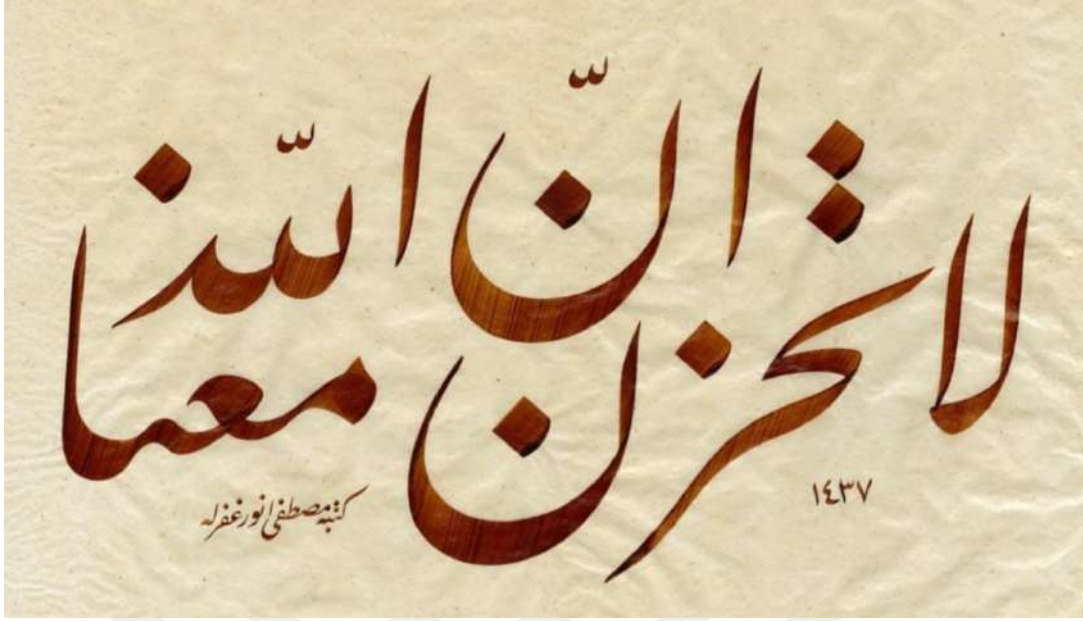 لا تحزن انّ الله معنا
١٤٣٧
كتبه مصطفى انور غفرله